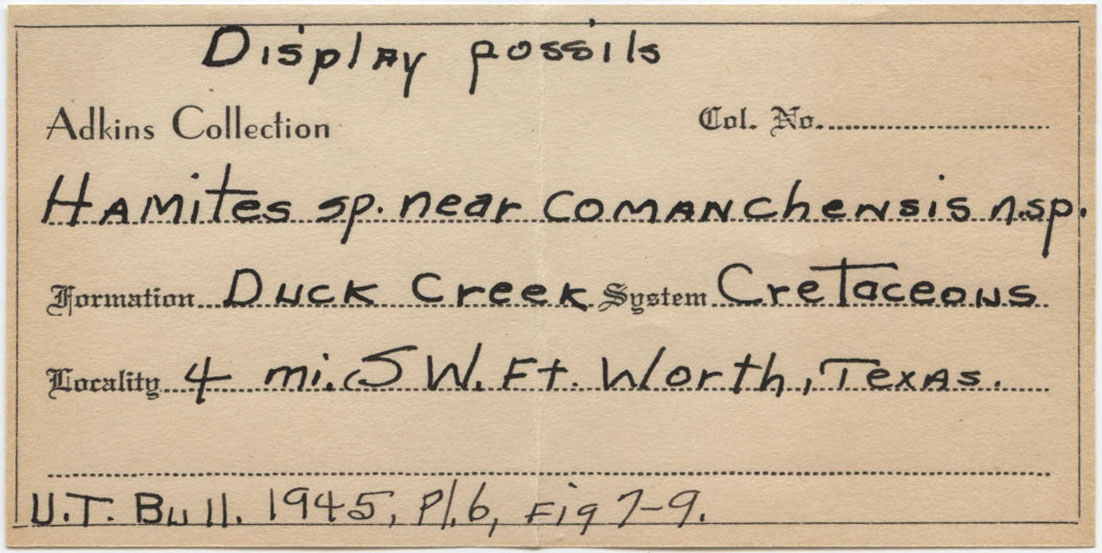 Display fossils
Adkins Collection Col. No.
Hamites sp. near comanchensis n.sp.
Formation Duck Creek System Cretaceous
Locality 4 mi. SW. Ft. Worth, Texas.
U.T. Bull. 1945, Pl. 6, Fig 7-9.